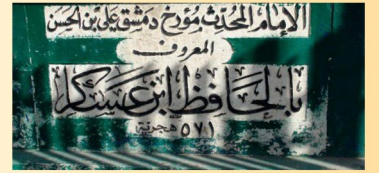 الإمام المحدث مؤرخ دمشق علي بن الحسن
المعروف
بالحافظ ابن عساكر
٥٧١ هجرية